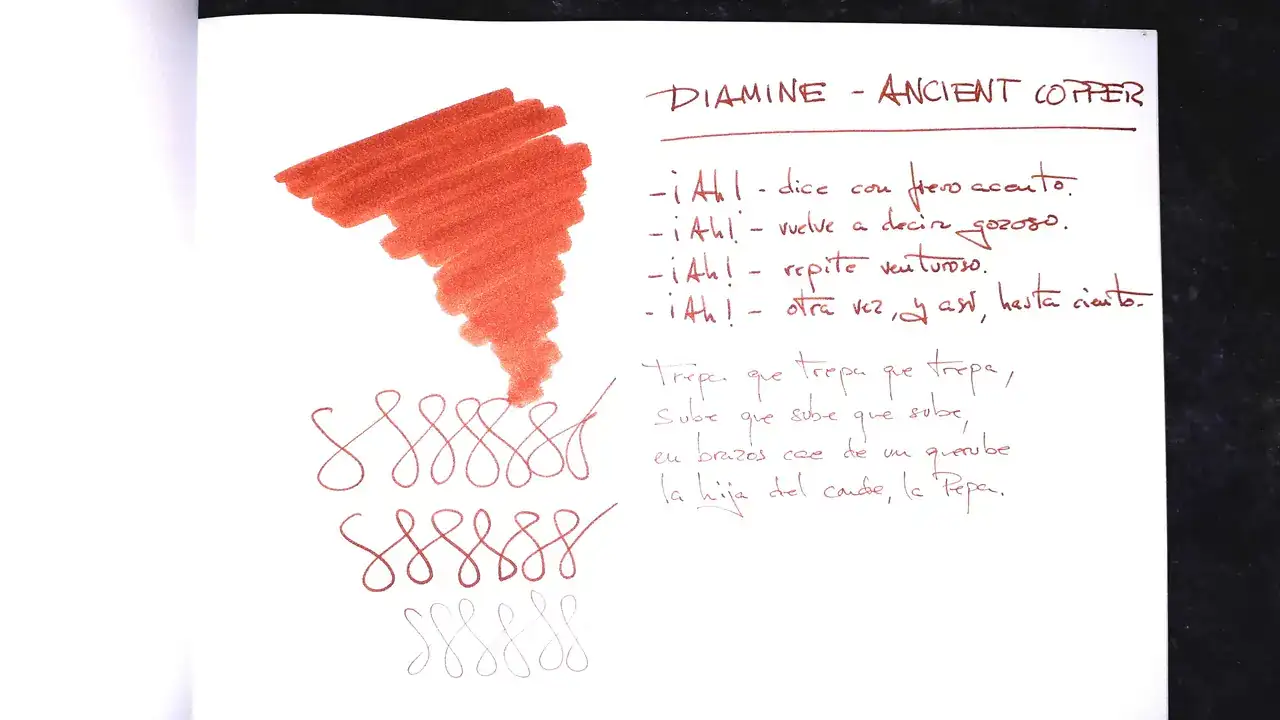 DIAMINE - ANCIENT COPPER
- ¡Ah! - dice con fiero acento.
- ¡Ah! - vuelve a decir gozoso.
- ¡Ah! - repite venturoso.
- ¡Ah! - otra vez, y así, hasta ciento.
Trepa que trepa que trepa,
sube que sube que sube,
en brazos cae de un querube
la hija del conde, la Pepa.